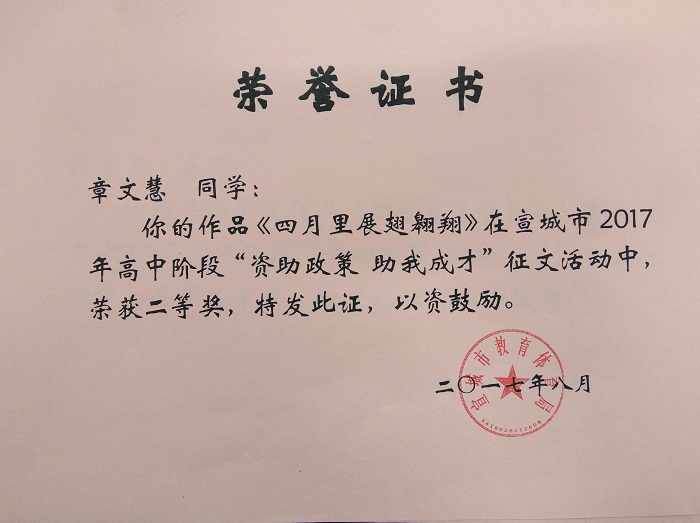 荣誉证书
章文慧 同学：
你的作品《四月里展翅翱翔》在宣城市2017
年高中阶段“资助政策 助我成才”征文活动中，
荣获二等奖，特发此证，以资鼓励。
宣城市教育体育局
二〇一七年八月